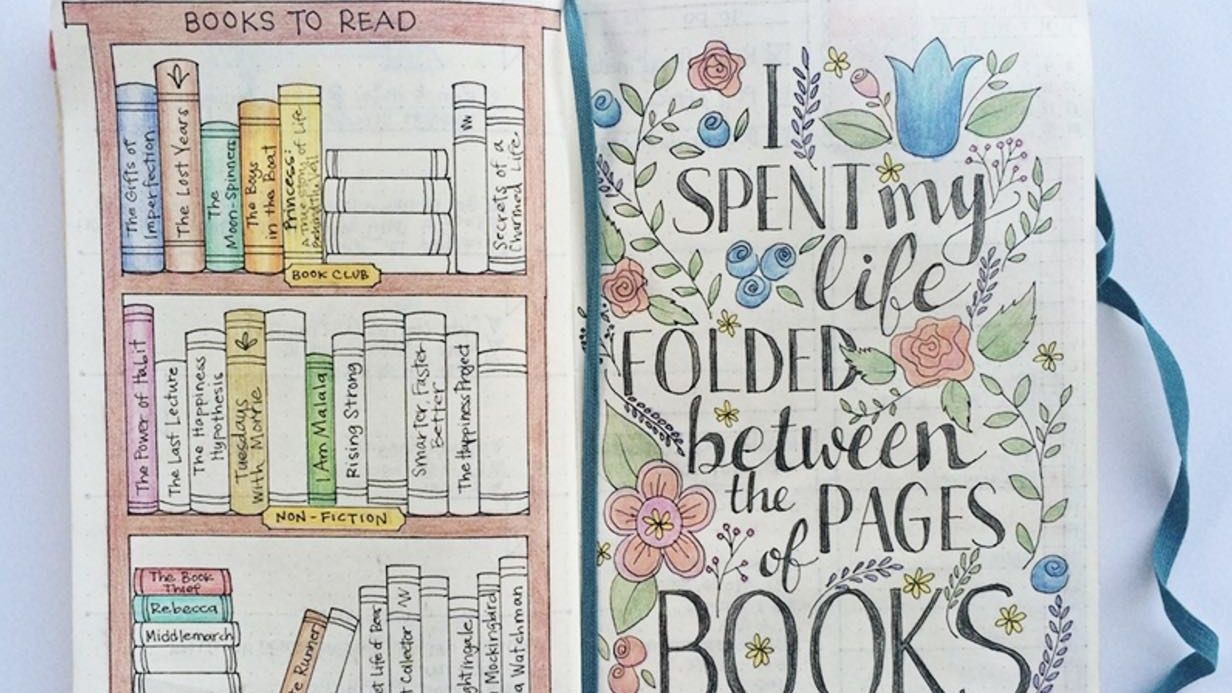 BOOKS TO READ
The Gifts of
Imperfection
The Lost Years
The
Moon-Spinners
The Boys
in the Boat
Princess:
A True Story of Life
Behind the Veil
Secrets of a
Charmed Life
BOOK CLUB
The Power of Habit
The Last Lecture
The Happiness
Hypothesis
Tuesdays
With Morrie
I Am Malala
Rising Strong
Smarter, Faster
Better
The Happiness Project
NON-FICTION
The Book
Thief
Rebecca
Middlemarch
e Runner
et Life of Bees
t Collector
ghtingale
Mockingbird
a Watchman
I
SPENT my
life
FOLDED
between
the PAGES
of
BOOKS